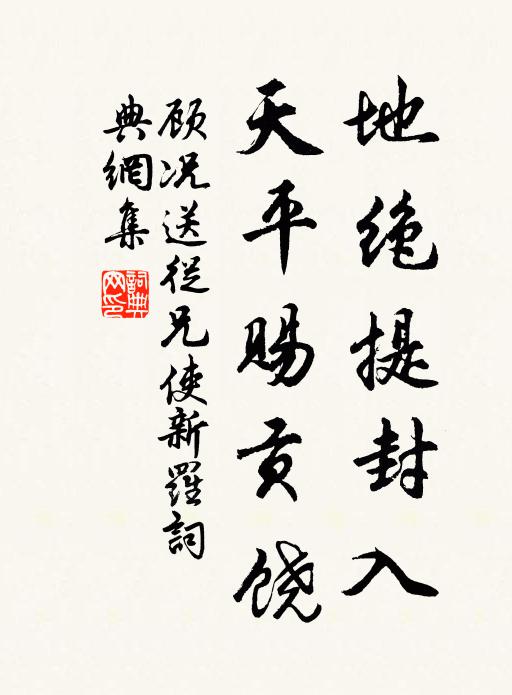 地绝提封入
天平赐贡饶
顾况送從兄使新羅詞
典網集
詞典网印